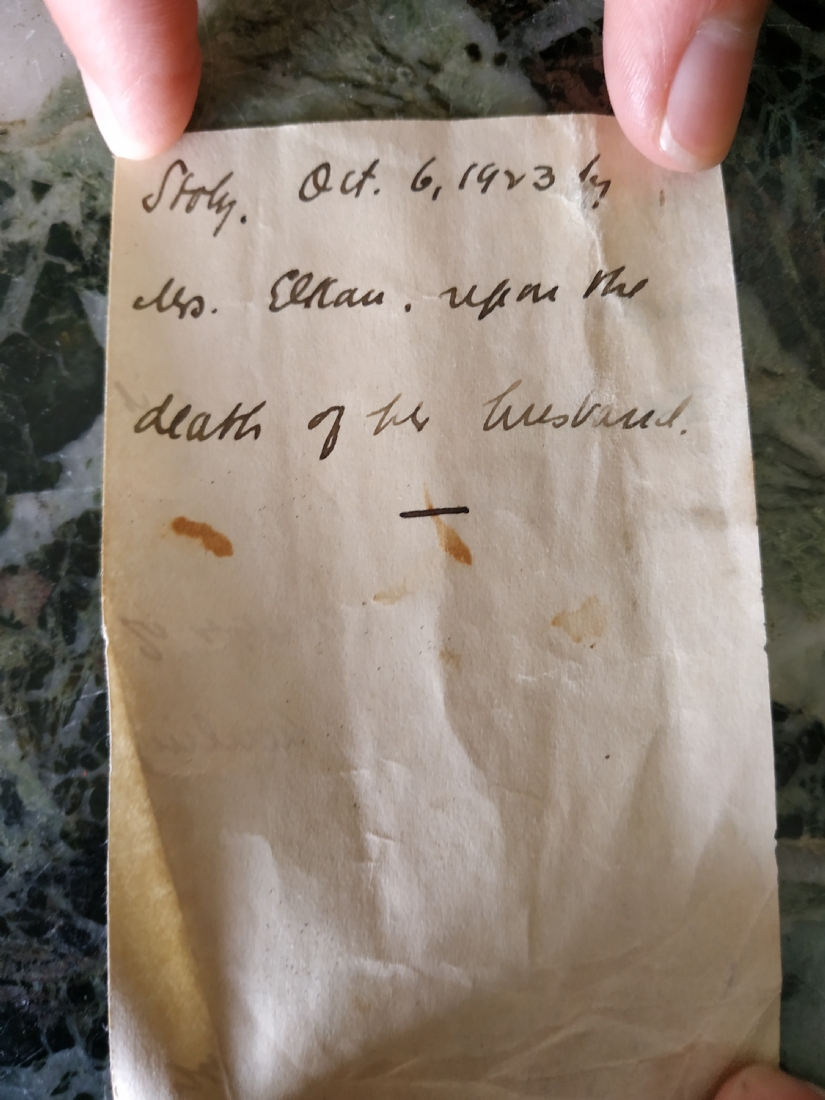 Stolz. Oct. 6, 1923 by
Mrs. Elkan. upon the
death of her husband.